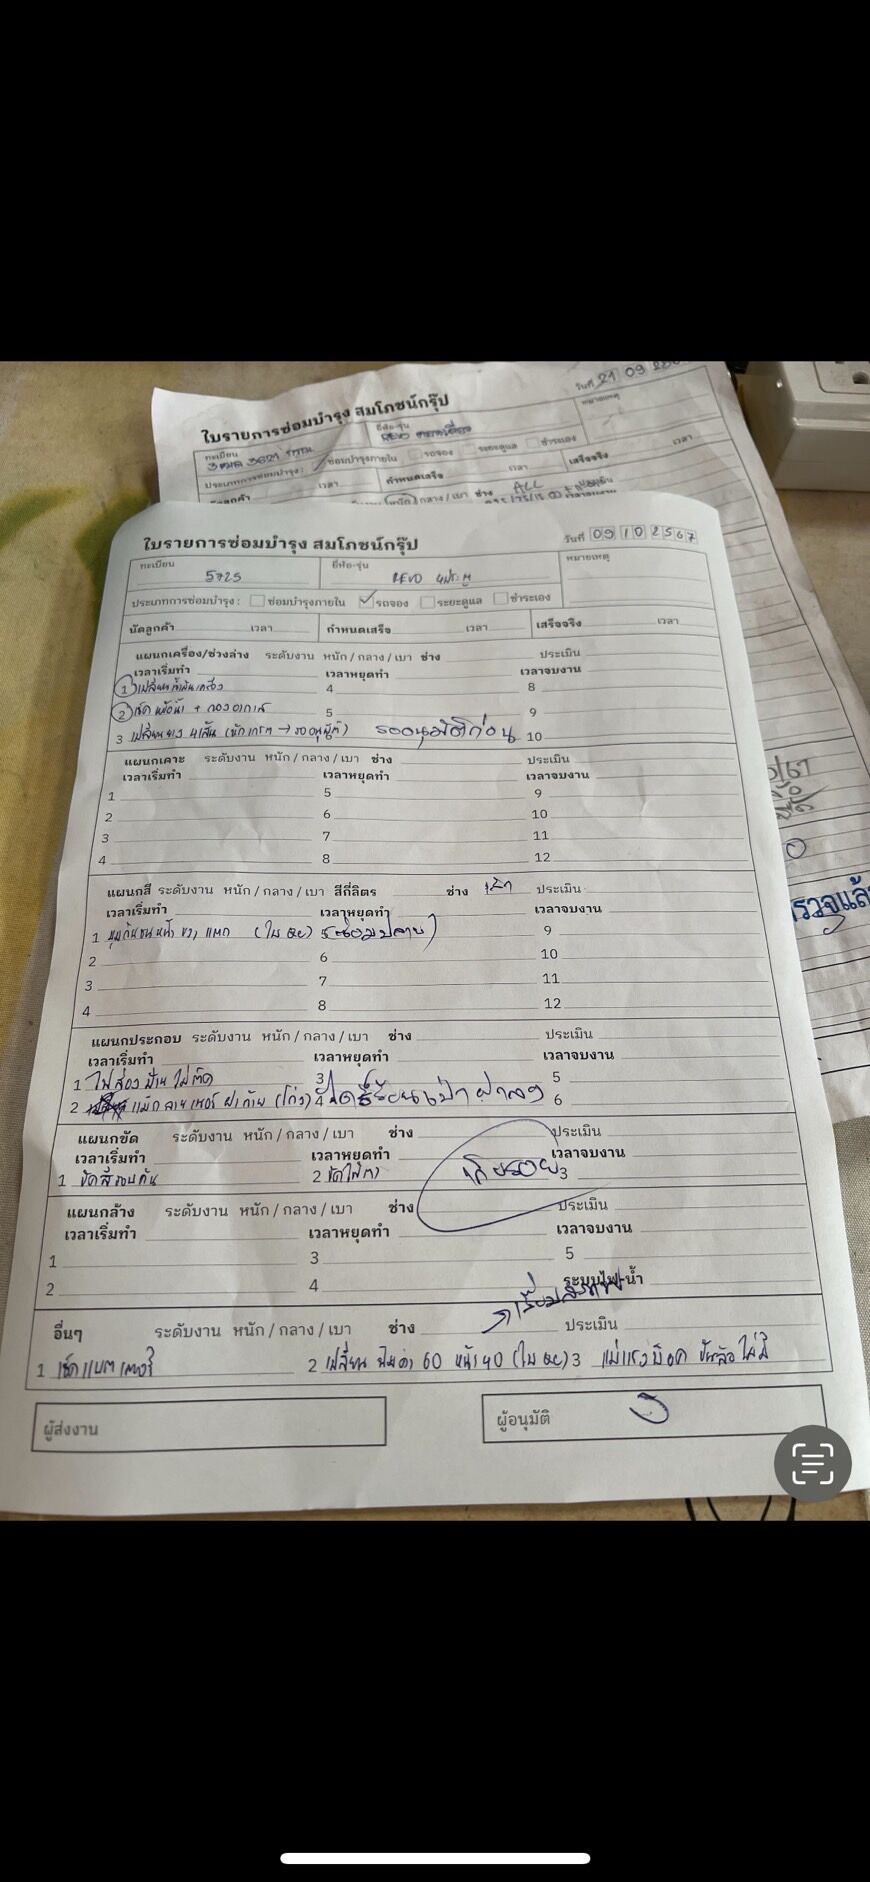 ใบรายการซ่อมบำรุง สมโภชน์กรุ๊ป
วันที่ 21 09
ทะเบียน ยี่ห้อ-รุ่น หมายเหตุ
REVO
ประเภทการซ่อมบำรุง : ซ่อมบำรุงภายใน รถจอง ระยะดูแล ชำระเอง
เวลา กำหนดเสร็จ เวลา เสร็จจริง เวลา
หนัก / กลาง / เบา ช่าง ALL
ใบรายการซ่อมบำรุง สมโภชน์กรุ๊ป
วันที่ 09 10 2567
ทะเบียน ยี่ห้อ-รุ่น หมายเหตุ
5725 REVO 4ประตู
ประเภทการซ่อมบำรุง : ซ่อมบำรุงภายใน รถจอง ระยะดูแล ชำระเอง
นัดลูกค้า เวลา กำหนดเสร็จ เวลา เสร็จจริง เวลา
แผนกเครื่อง/ช่วงล่าง ระดับงาน หนัก / กลาง / เบา ช่าง ประเมิน
เวลาเริ่มทำ เวลาหยุดทำ เวลาจบงาน
1 เปลี่ยนน้ำมันเครื่อง 4 8
2 เช็คหม้อน้ำ + กรองอากาศ 5 9
3 เปลี่ยนยาง 4เส้น รออนุมัติก่อน 10
แผนกเคาะ ระดับงาน หนัก / กลาง / เบา ช่าง ประเมิน
เวลาเริ่มทำ เวลาหยุดทำ เวลาจบงาน
1 5 9
2 6 10
3 7 11
4 8 12
แผนกสี ระดับงาน หนัก / กลาง / เบา สีกี่ลิตร ช่าง ประเมิน
เวลาเริ่มทำ เวลาหยุดทำ เวลาจบงาน
1 มุมกันชนหน้า ขวา แตก 5 9
2 6 10
3 7 11
4 8 12
แผนกประกอบ ระดับงาน หนัก / กลาง / เบา ช่าง ประเมิน
เวลาเริ่มทำ เวลาหยุดทำ เวลาจบงาน
1 ไฟส่องป้ายไม่ติด 3 5
2 ฝาท้าย (โก่ง) 4 6
แผนกขัด ระดับงาน หนัก / กลาง / เบา ช่าง ประเมิน
เวลาเริ่มทำ เวลาหยุดทำ เวลาจบงาน
1 ขัดสีรอบคัน 2 ขัดไฟตา เก็บรอย 3
แผนกล้าง ระดับงาน หนัก / กลาง / เบา ช่าง ประเมิน
เวลาเริ่มทำ เวลาหยุดทำ เวลาจบงาน
1 3 5
2 4 ระบบไฟ-น้ำ
อื่นๆ ระดับงาน หนัก / กลาง / เบา ช่าง ประเมิน
1 เช็คแบตเตอรี่ 2 เปลี่ยน 60 หน้า 40 3 แม่แรง บล็อค ขันล้อ ไม่มี
ผู้ส่งงาน ผู้อนุมัติ